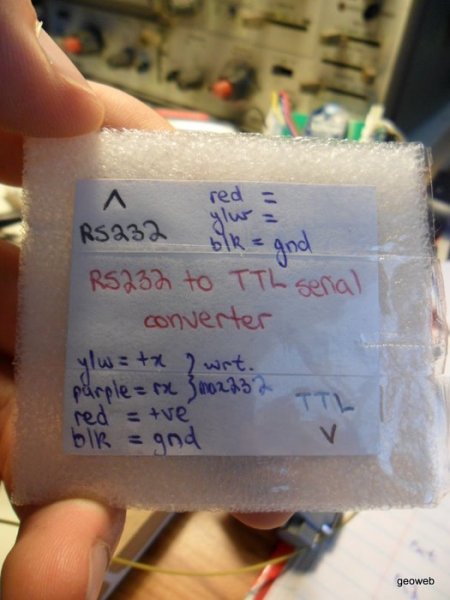 ^
RS232
red =
y/w =
blk = gnd
RS232 to TTL serial
converter
y/w = tx } wrt.
purple = rx } max232
red = +ve
blk = gnd
TTL
v
geoweb